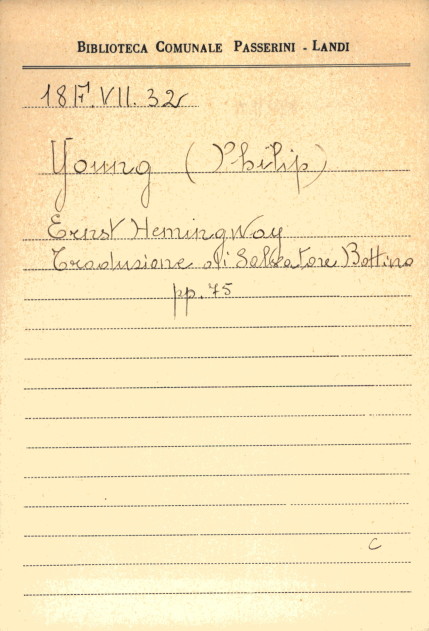 BIBLIOTECA COMUNALE PASSERINI - LANDI
18 F. VII. 32
Young (Philip)
Ernst Hemingway
Traduzione di Salvatore Bottino
pp. 75
C